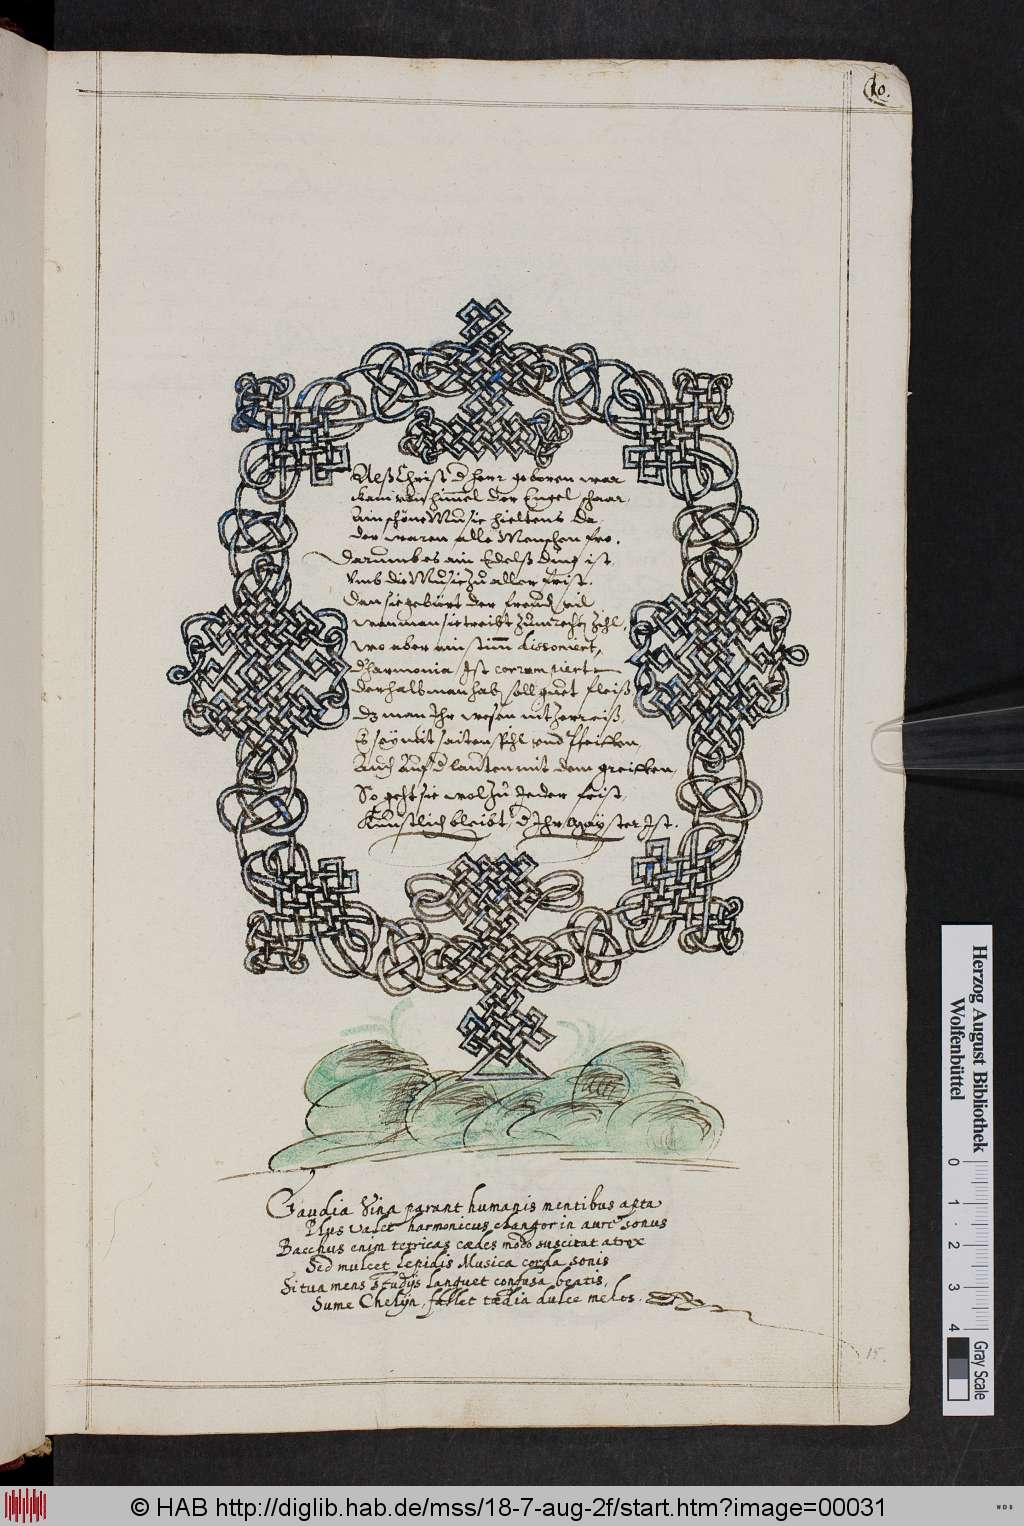 10.
Alß Christ d herr geboren war
kam von himel der Engel schaar,
Ain schöne Music hieltens da,
der waren alle Menschen fro.
Darumb es ain Edelß ding ist
umb die Music zu aller frist.
Dan sie gebürt der freud vil
wan man sie treibt zum rechten Zihl,
wo aber ain stim dissoniert,
d'harmonia Ist corrumpiert
derhalb man hab soll guet fleiß
dz man Ihr wesen nit zerreiß,
Es sey mit saiten Spihl und Pfeiffen,
Auch Auf d lauten mit dem greiffen,
So geht sie wol zu Jeder frist,
Künstlich bleibt, d Ihr Mayster Ist.
Gaudia Vina parant humanis mentibus apta
Plus valet harmonicus clangor in aure sonus
Bacchus enim tetricas cædes modo suscitat atrox
Sed mulcet lepidis Musica corda sonis
Si tua mens studijs languet confusa beatis,
Sume Chelyn, fallet tædia dulce melos.
15.
Herzog August Bibliothek
Wolfenbüttel
0 1 2 3 4
Gray Scale
© HAB http://diglib.hab.de/mss/18-7-aug-2f/start.htm?image=00031
WDB